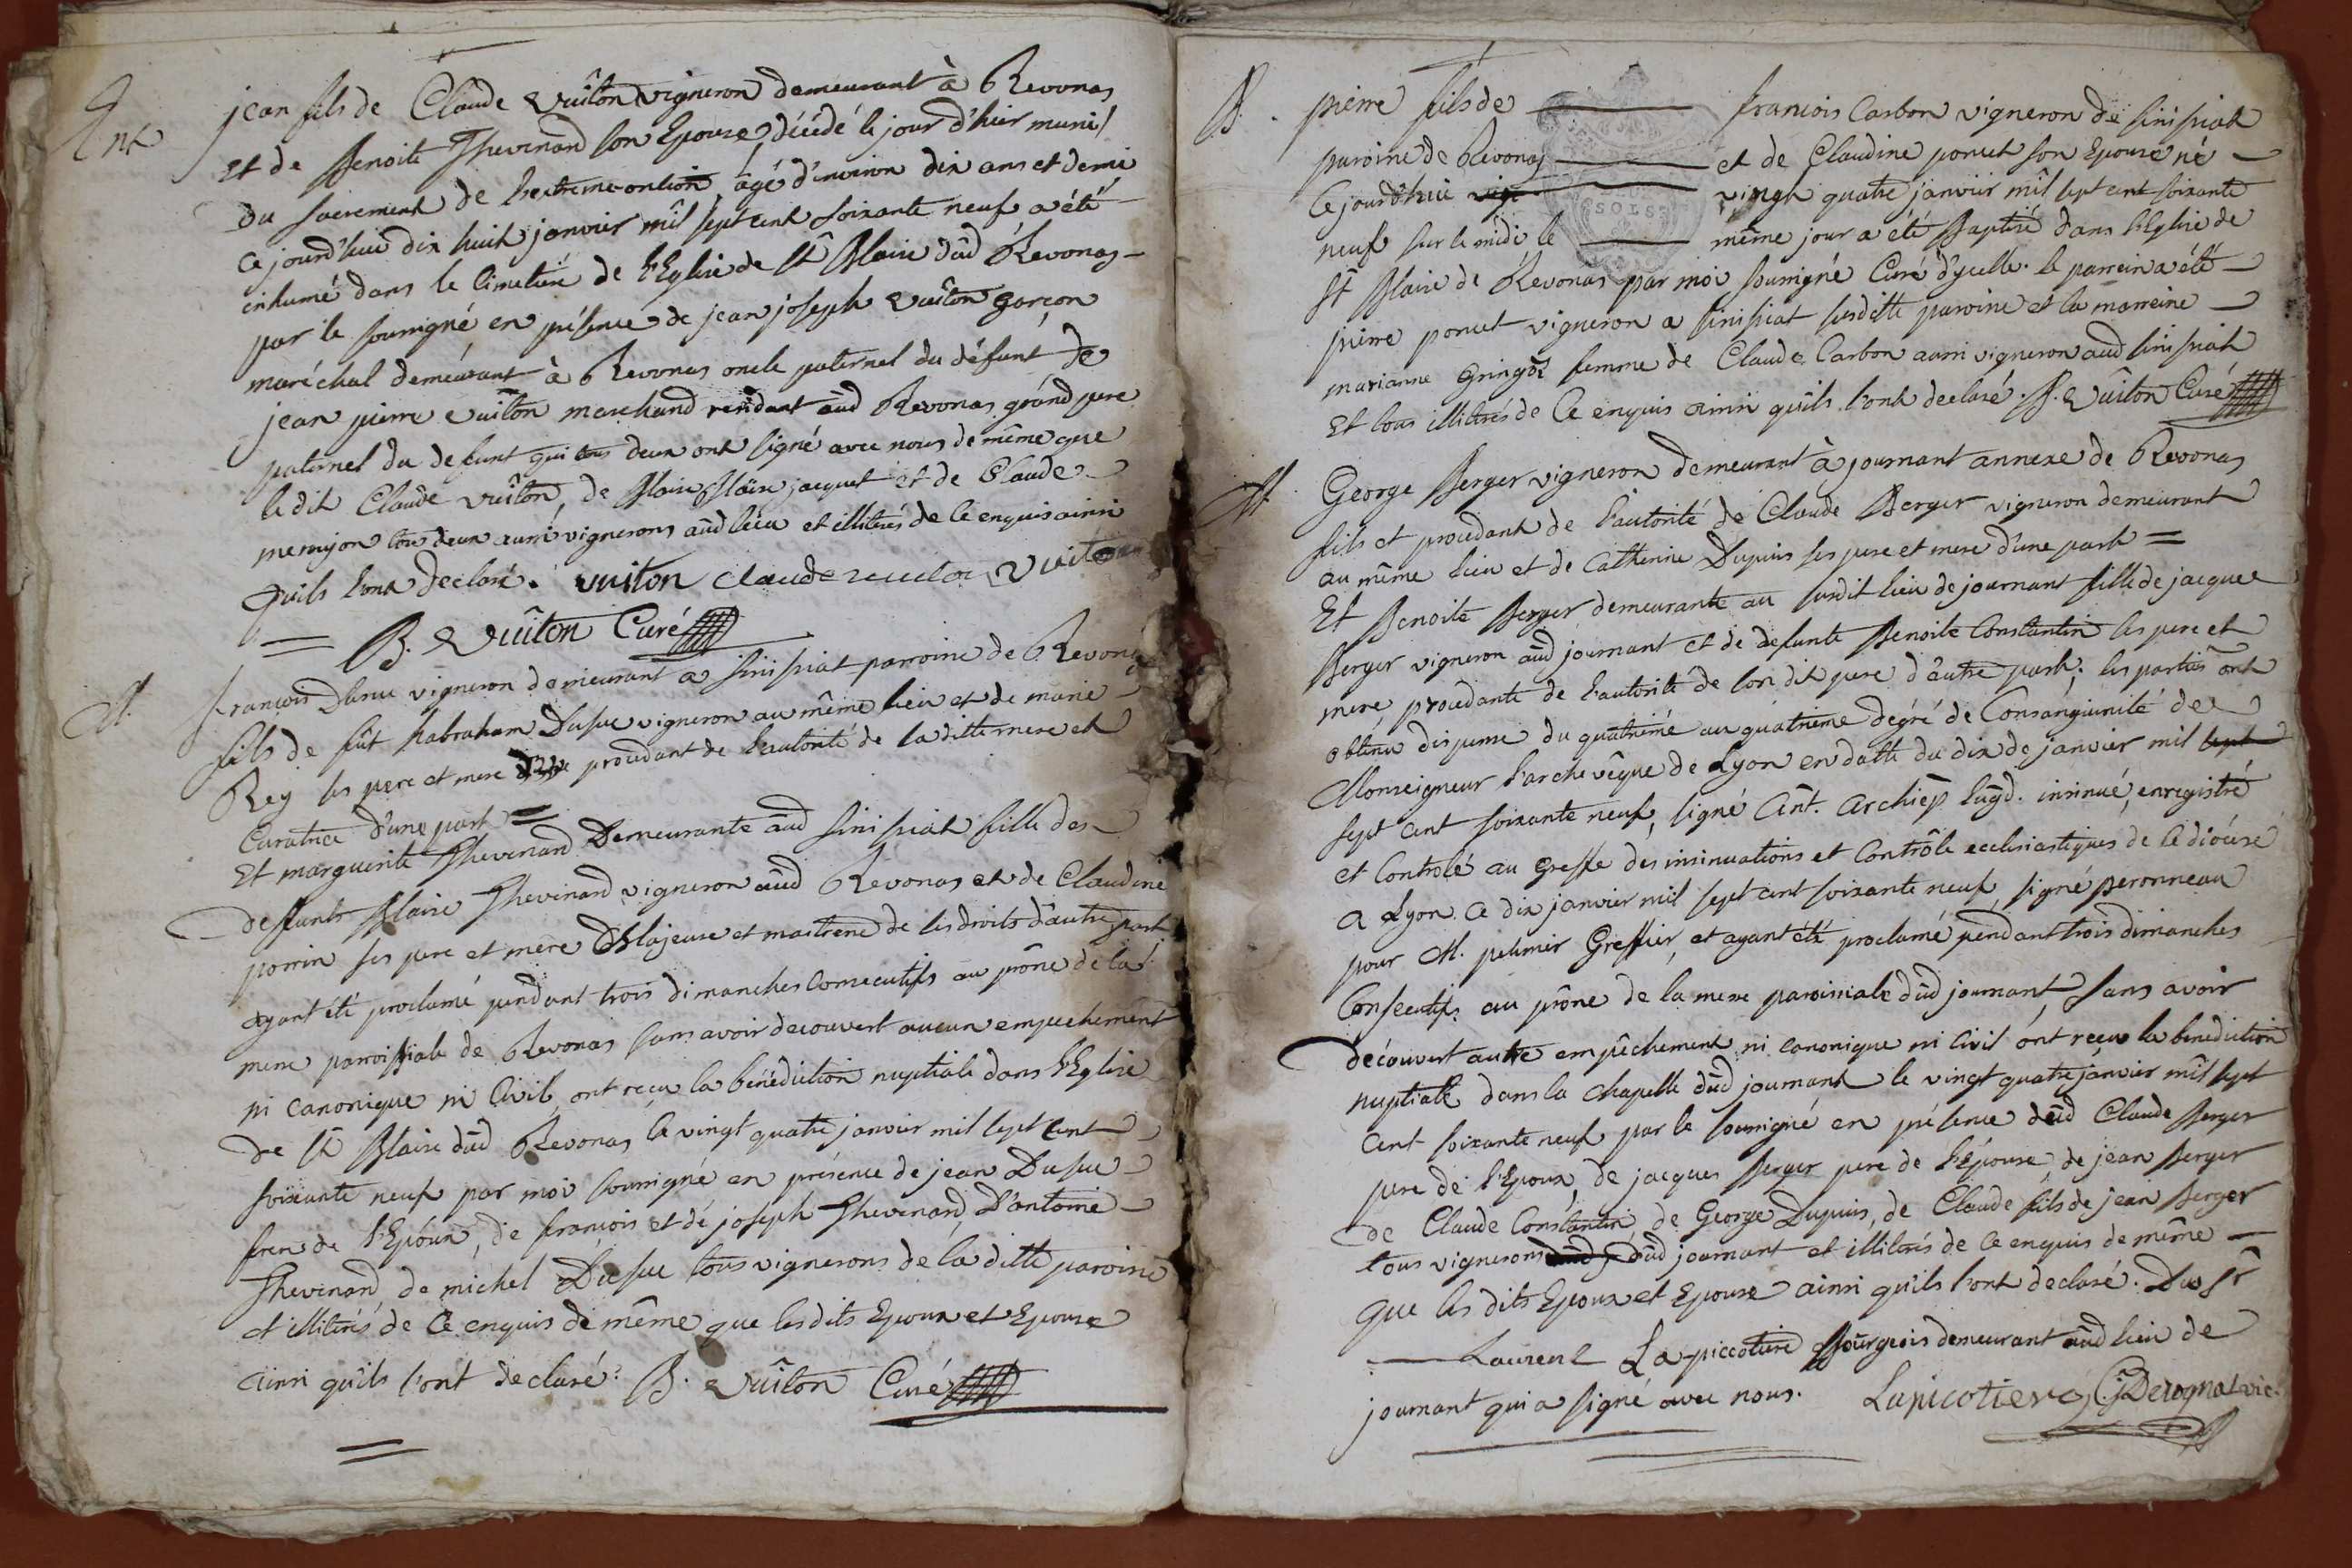 Ent
jean fils de Claude Vuiton vigneron demeurant à Revonas
et de Benoite Thevenand son Epouse, décédé le jour d'hier muni
du sacrement de l'extreme-onction, âgé d'environ dix ans et demi
ce jourd'hui dix huit janvier mil sept cent soixante neuf a été
inhumé dans le Cimetiére de l'Eglise de St Blaise dud Revonas
par le soussigné en présence de jean joseph Vuiton garçon
maréchal demeurant à Revonas oncle paternel du défunt de
jean pierre Vuiton marchand résidant aud Revonas grand pere
paternel du defunt qui tous deux ont signé avec nous de même que
ledit Claude Vuiton, de Blaise jacquet et de Claude
tous deux aussi vignerons aud lieu et illitérés de ce enquis ainsi
qu'ils l'ont declaré. vuiton claude vuiton Vuiton
B. Vuiton Curé
M.
francois Dusuc vigneron demeurant a sinissiat parroisse de Revonas
fils de fût habraham Dusuc vigneron au même lieu et de marie
Rey ses pere et mere procedant de l'autorité de la ditte mere et
Curatrice d'une part =
Et marguerite Thevenand Demeurante aud sinissiat fille des
deffunts Blaise Thevenand vigneron aud Revonas et de Claudine
perrin ses pere et mere Majeure et maitresse de ses droits d'autre part
ayant été proclamé pendant trois dimanches consecutifs au prône de la
messe paroissiale de Revonas sans avoir decouvert aucun empechement
ni canonique ni Civil, ont reçu la bénédiction nuptiale dans l'Eglise
de St Blaise dud Revonas le vingt quatre janvier mil sept cent
soixante neuf par moi soussigné en présence de jean Dusuc
frere de l'Epoux, de francois et de joseph Thevenand, D'antoine
Thevenand, de michel Dusuc tous vignerons de la ditte paroisse
et illitérés de ce enquis de même que lesdits Epoux et Epouse
ainsi qu'ils l'ont declaré. B. Vuiton Curé
B.
pierre fils de francois Carbon vigneron de sinissiat
paroisse de Revonas et de Claudine poncet son Epouse né
ce jourd'hui vingt quatre janvier mil sept cent soixante
neuf sur le midi le même jour a été Baptisé dans l'Eglise de
St Blaise de Revonas par moi soussigné Curé d'ycelle. le parrein a été
pierre poncet vigneron a sinissiat susditte paroisse et la marreine
marianne gringoz femme de Claude Carbon aussi vigneron aud sinissiat
et tous illitérés de ce enquis ainsi qu'ils l'ont declaré. B. Vuiton Curé
SOLS
M.
George Berger vigneron demeurant à journant annexe de Revonas
fils et procedant de l'autorité de Claude Berger vigneron demeurant
au même lieu et de Catherine Dupuis ses pere et mere d'une part =
Et Benoite Berger demeurante au susdit lieu de journant fille de jacque
Berger vigneron aud journant et de defunte Benoite Constantin ses pere et
mere procedante de l'autorité de son dit pere d'autre part. les parties ont
obtenu dispense du quatriéme au quatrième degré de Consanguinité de
Monseigneur l'archevêque de Lyon en datte du dix de janvier mil sept
sept cent soixante neuf, signé Ant. Archiep Lugd. insinué, enregistré
et Controlé au Greffe des insinuations et Contrôle ecclesiastiques de ce diocése
a Lyon. ce dix janvier mil sept cent soixante neuf, signé peronneau
pour M. Greffier, et ayant été proclamé pendant trois dimanches
Consecutifs au prône de la messe paroissiale dud journant, sans avoir
découvert autre empêchement ni canonique ni Civil ont reçu la benediction
nuptiale dans la chapelle dud journant le vingt quatre janvier mil sept
cent soixante neuf par le soussigné en présence dud Claude Berger
pere de l'Epoux, de jacques Berger pere de l'Epouse, de jean Berger
de Claude Constantin, de George Dupuis, de Claude fils de jean Berger
tous vignerons dud journant et illitérés de ce enquis de même
que les dits Epoux et Epouse ainsi qu'ils l'ont declaré. Du Sr
Laurent La piccotiere Bourgeois demeurant aud lieu de
journant qui a signé avec nous. Lapicotiere, Derognat vic.